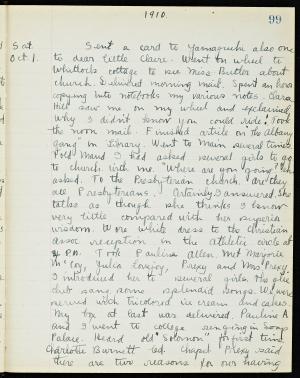 1910.
99
Sat. Sent a card to Yamaguchi also one
Oct. 1. to dear little Claire. Went on wheel to
Whitlocks cottage to see Miss Butler about
church. Delivered morning mail. Spent an hour
copying into notebooks my various notes. Clara
Hill saw me on my wheel and exclaimed
"Why I didn't know you could ride". Took
the noon mail. Finished article on the Albany
gang in Library. Went to Main several times.
Told Maud I had asked several girls to go
to church with me. "Where are you going" she
asked. To the Presbyterian church. "Are they
all Presbyterians". Certainly I answered. She
talks as though she thinks I know
very little compared with her superior
wisdom. Wore white dress to the Christian
Assoc. reception in the athletic circle at
4 P.M. Took Pauline Allen. Met Marjorie
McCoy, Julia Lovejoy, Prexy and Mrs Prexy.
I introduced her to several girls. The glee
club sang some splendid songs. We were
served with tricolored ice cream and cakes.
My box at last was delivered. Pauline A.
and I went to college singing in songs
Palace. Heard old "Solomon" for first time.
Charlotte Burnett led. Chapel Prexy said
there are two reasons for our having